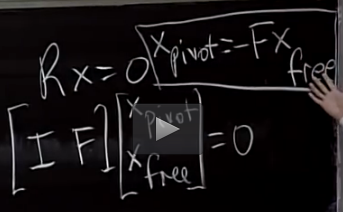 Rx=0 x_pivot=-Fx_free
[I F][x_pivot x_free]=0